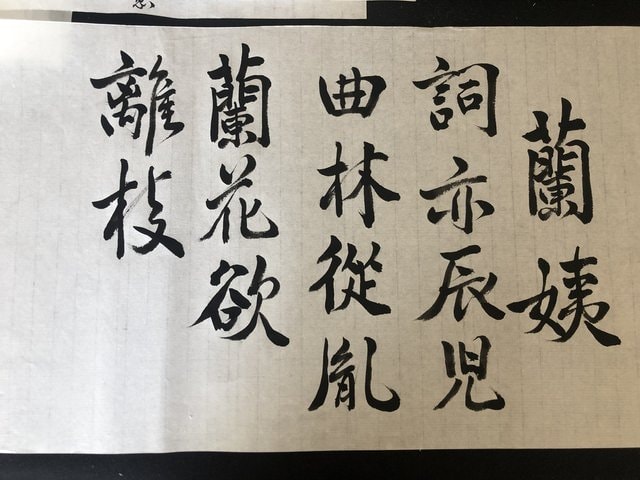 蘭姨
詞亦辰児
曲林從胤
蘭花欲
離枝